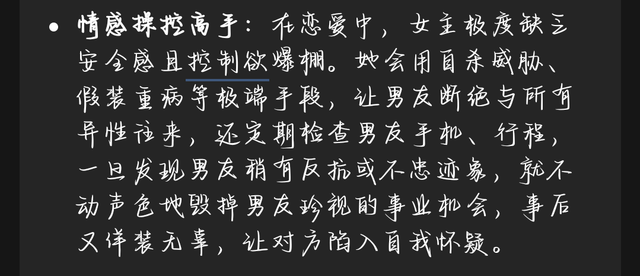 • 情感操控高手：在恋爱中，女主极度缺乏
安全感且控制欲爆棚。她会用自杀威胁、
假装重病等极端手段，让男友断绝与所有
异性往来，还定期检查男友手机、行程，
一旦发现男友稍有反抗或不忠迹象，就不
动声色地毁掉男友珍视的事业机会，事后
又佯装无辜，让对方陷入自我怀疑。